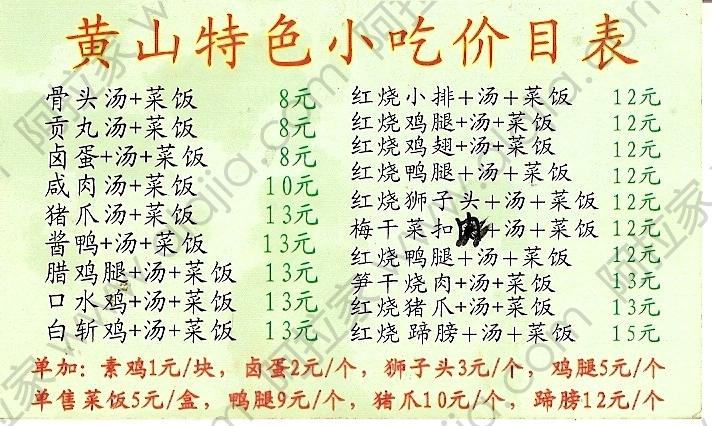 黄山特色小吃价目表
骨头汤+菜饭 8元
贡丸汤+菜饭 8元
卤蛋+汤+菜饭 8元
咸肉汤+菜饭 10元
猪爪汤+菜饭 13元
酱鸭+汤+菜饭 13元
腊鸡腿+汤+菜饭 13元
口水鸡+汤+菜饭 13元
白斩鸡+汤+菜饭 13元
红烧小排+汤+菜饭 12元
红烧鸡腿+汤+菜饭 12元
红烧鸡翅+汤+菜饭 12元
红烧鸭腿+汤+菜饭 12元
红烧狮子头+汤+菜饭 12元
梅干菜扣肉+汤+菜饭 12元
红烧鸭腿+汤+菜饭 12元
笋干烧肉+汤+菜饭 13元
红烧猪爪+汤+菜饭 13元
红烧蹄膀+汤+菜饭 15元
单加：素鸡1元/块，卤蛋2元/个，狮子头3元/个，鸡腿5元/个
单售菜饭5元/盒，鸭腿9元/个，猪爪10元/个，蹄膀12元/个
阿拉家 www.alajia.com